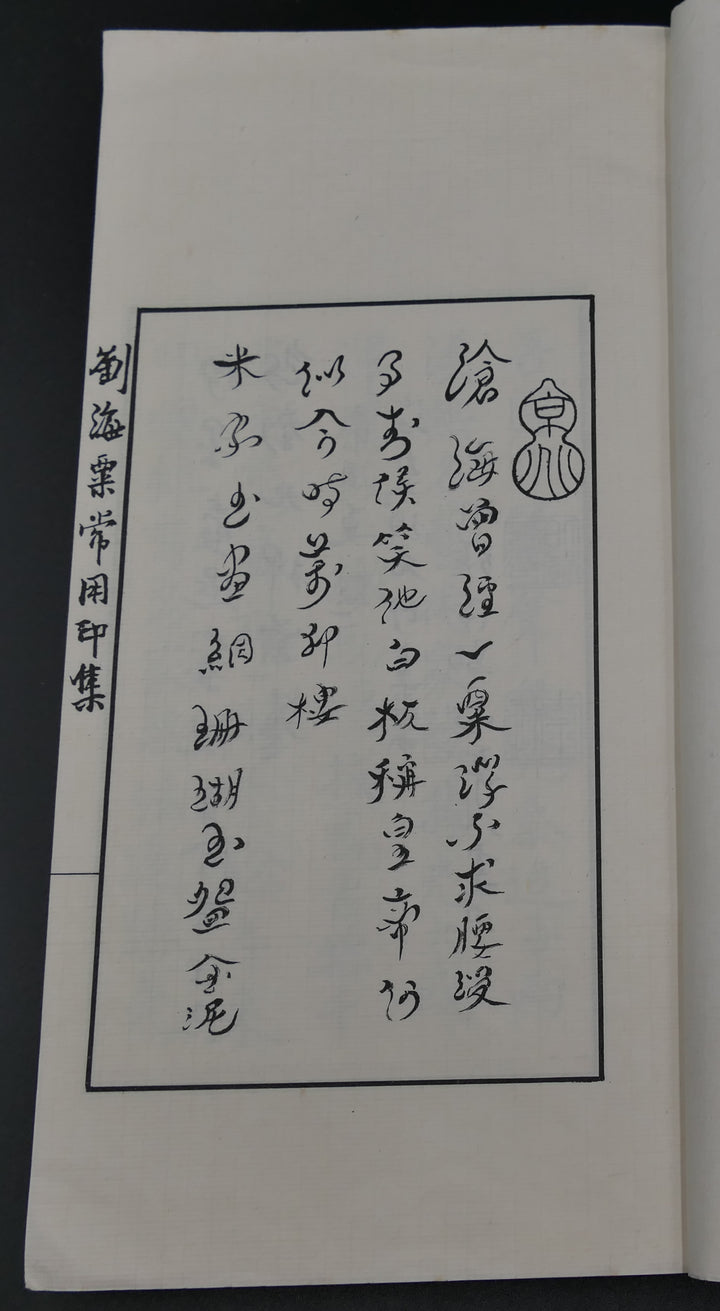 京兆
滄海曾經一粟浮不求腰綬
与封侯笑他白板稱皇帝何
似今時萬印樓
米家書畫網珊瑚玉金泥
劉海粟常用印集